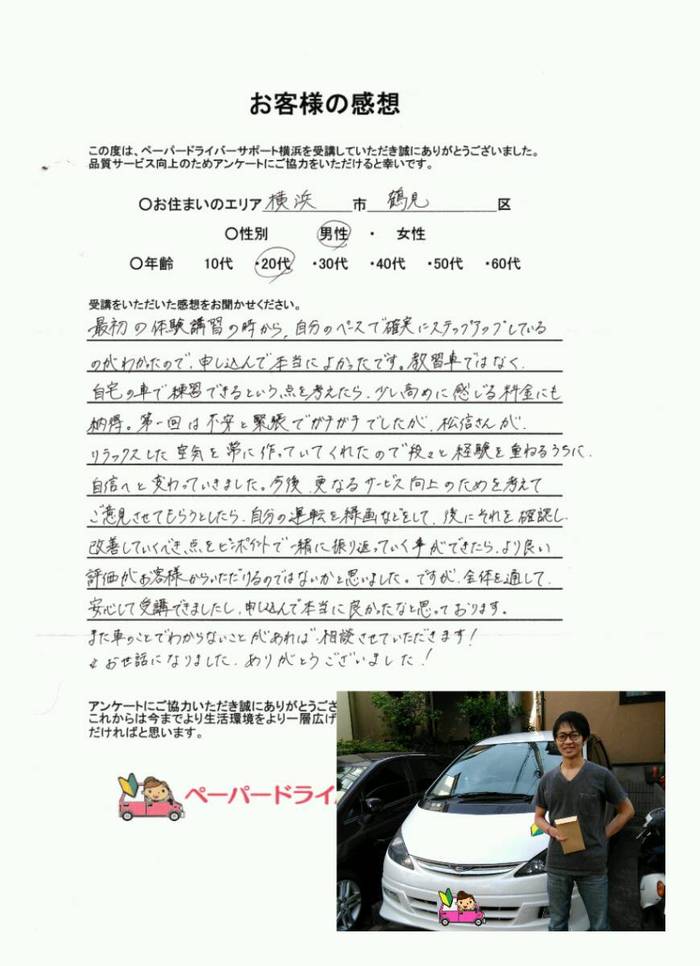 お客様の感想
この度は、ペーパードライバーサポート横浜を受講していただき誠にありがとうございました。
品質サービス向上のためアンケートにご協力をいただけると幸いです。
〇お住まいのエリア 横浜 市 鶴見 区
〇性別 男性 ・ 女性
〇年齢 10代 ・20代 ・30代 ・40代 ・50代 ・60代
受講をいただいた感想をお聞かせください。
最初の体験講習の時から、自分のペースで確実にステップアップしている
のがわかったので、申し込んで本当によかったです。教習車ではなく、
自宅の車で練習できるという点を考えたら、少し高めに感じる料金にも
納得。第一回は不安と緊張でガチガチでしたが、松信さんが、
リラックスした空気を常に作っていてくれたので段々と経験を重ねるうちに、
自信へと変わっていきました。今後、更なるサービス向上のためを考えて
ご意見させてもらうとしたら、自分の運転を録画などをして、後にそれを確認し、
改善していくべき点をピンポイントで一緒に振り返っていく事ができたら、より良い
評価がお客様からいただけるのではないかと思いました。ですが、全体を通して、
安心して受講できましたし、申し込んで本当に良かったなと思っております。
また車のことでわからないことがあれば相談させていただきます!
お世話になりました。ありがとうございました!
アンケートにご協力いただき誠にありがとうござ
これからは今までより生活環境をより一層広げ
だければと思います。
ペーパードライ